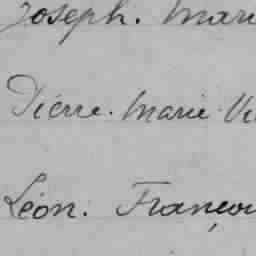 Joseph. Mari
Pierre. Marie Vi
Léon. Françoi